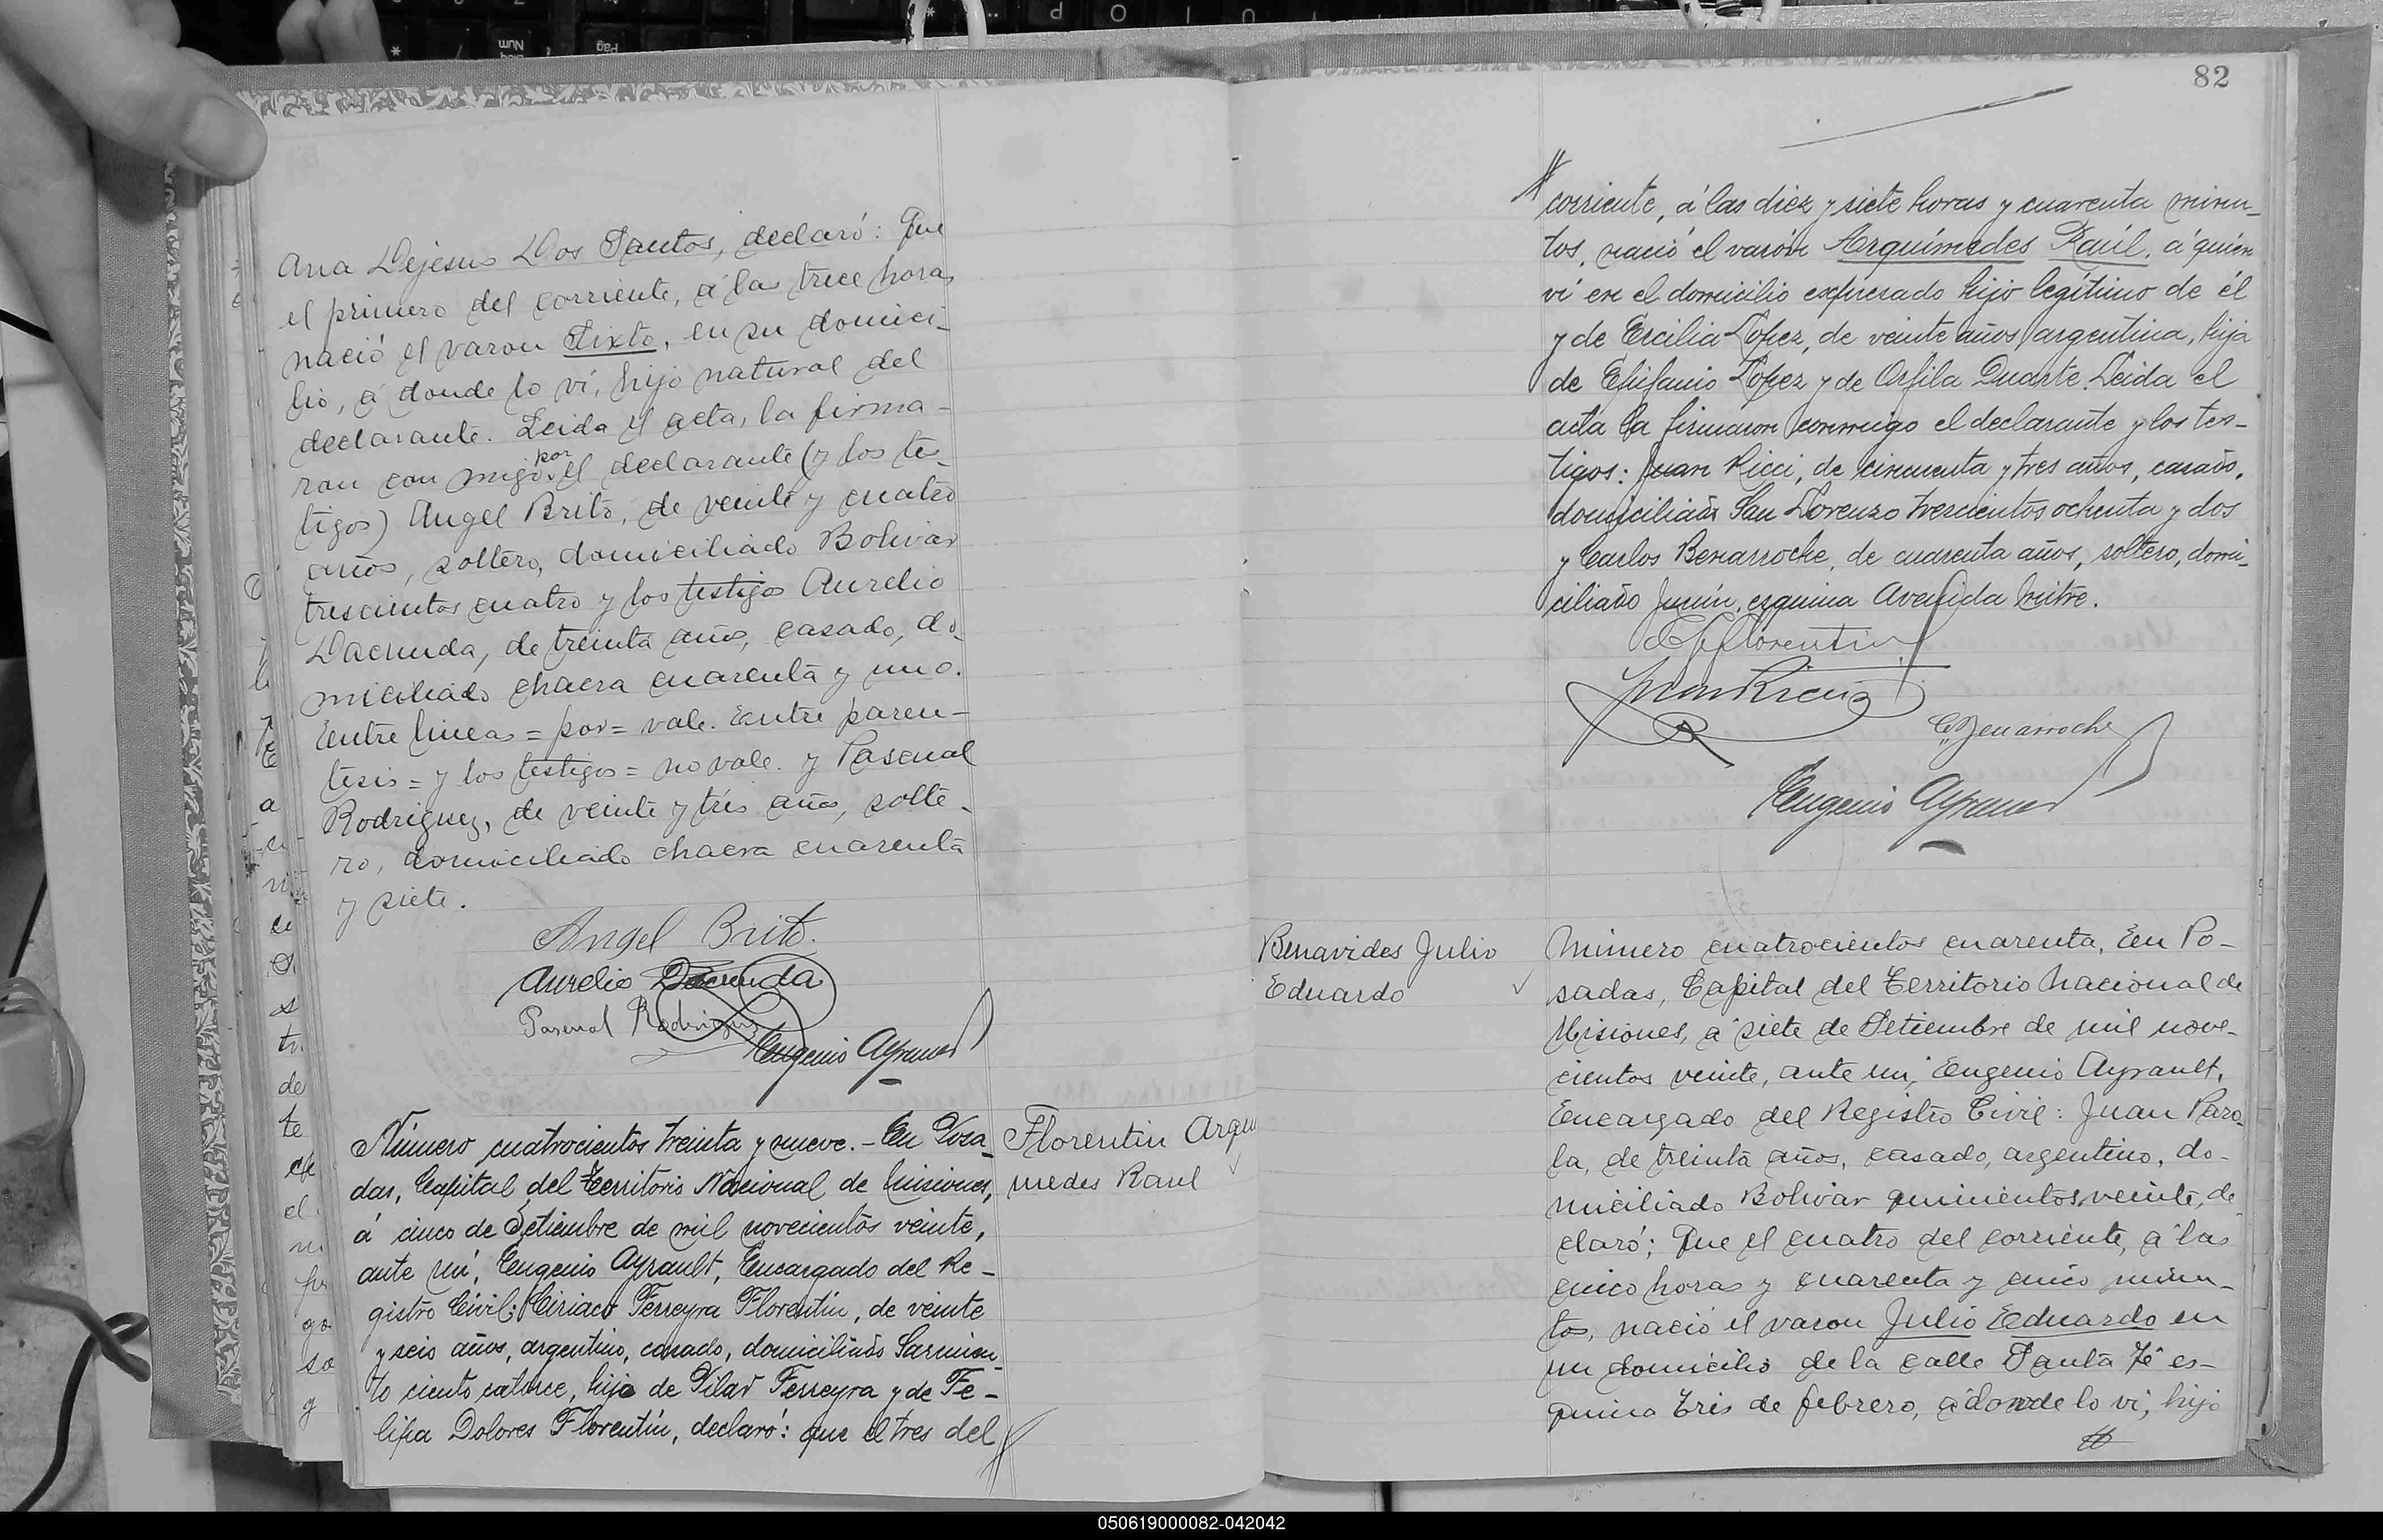 Ana Dejesus Dos Santos, declaró: Que
el primero del corriente, á las trece horas
nació el varon Sixto, en su domici-
lio, á donde lo ví, hijo natural del
declarante. Leida el acta, la firma-
ron con migo por el declarante (y los tes-
tigos) Angel Brito, de veinte y cuatro
años, soltero, domiciliado Bolivar
trescientos cuatro y los testigos Aurelio
Dacunda, de treinta años, casado, do-
miciliado chacra cuarenta y uno.
Entre lineas = por = vale. Entre paren-
tesis = y los testigos = no vale. y Pascual
Rodriguez, de veinte y tres años, solte-
ro, domiciliado chacra cuarenta
y siete.
Angel Brito.
Aurelio Dacunda
Pascual Rodriguez
Eugenio Ayrault
Número cuatrocientos treinta y nueve. - En Posa-
das, Capital del Territorio Nacional de Misiones,
á cinco de Setiembre de mil novecientos veinte,
ante mí, Eugenio Ayrault, Encargado del Re-
gistro Civil: Ciriaco Ferreyra Florentín, de veinte
y seis años, argentino, casado, domiciliado Sarmien-
to ciento catorce, hijo de Pilar Ferreyra y de Fe-
lipa Dolores Florentín, declaró: que el tres del
Florentin Arqui
medes Raul
82
corriente, á las diez y siete horas y cuarenta minu-
tos, nació el varón Arquímedes Raúl, á quién
ví en el domicilio expresado hijo legítimo de él
y de Ercilia Lopez, de veinte años, argentina, hija
de Epifanio Lopez y de Orfila Duarte. Leida el
acta la firmaron conmigo el declarante y los tes-
tigos: Juan Ricci, de cincuenta y tres años, casado,
domiciliado San Lorenzo trescientos ochenta y dos
y Carlos Benarroche, de cuarenta años, soltero, domi-
ciliado Junín, esquina Avenida Mitre.
Florentin
Juan Ricci
C. Benarroche
Eugenio Ayrault
Benavides Julio
Eduardo
Número cuatrocientos cuarenta, En Po-
sadas, Capital del Territorio Nacional de
Misiones, á siete de Setiembre de mil nove-
cientos veinte, ante mi, Eugenio Ayrault,
Encargado del Registro Civil: Juan Paro-
la, de treinta años, casado, argentino, do-
miciliado Bolivar quinientos veinte, de-
claró; Que el cuatro del corriente, á las
cinco horas y cuarenta y cinco minu-
tos, nació el varon Julio Eduardo en
un domicilio de la calle Santa Fé es-
quina tres de febrero, á donde lo vi, hijo
050619000082-042042